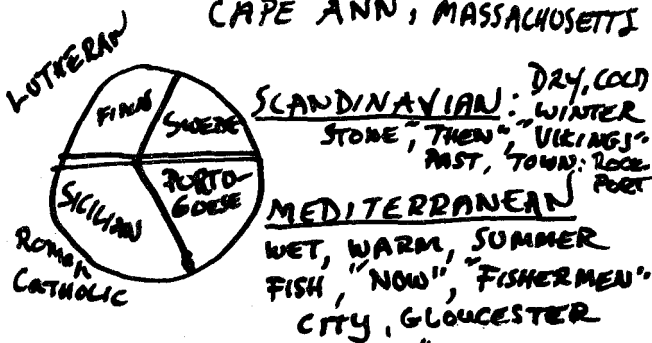 CAPE ANN, MASSACHUSETTS
LUTHERAN
FINN
SWEDE
SICILIAN
PORTO-
GUESE
ROMAN
CATHOLIC
SCANDINAVIAN: DRY, COLD
WINTER
STONE, "THEN", "VIKINGS"
PAST, TOWN: ROCK-
PORT
MEDITERRANEAN
WET, WARM, SUMMER
FISH, "NOW", "FISHERMEN"
CITY, GLOUCESTER